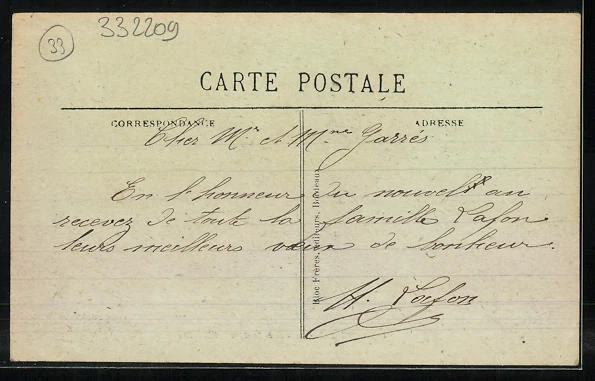 33
332209
CARTE POSTALE
CORRESPONDANCE
ADRESSE
Cher Mr et Mme Garrés
En l'honneur du nouvel an
recevez de toute la famille Lafon
leurs meilleurs vœux de bonheur.
H. Lafon
Bloc Frères, éditeurs, Bordeaux